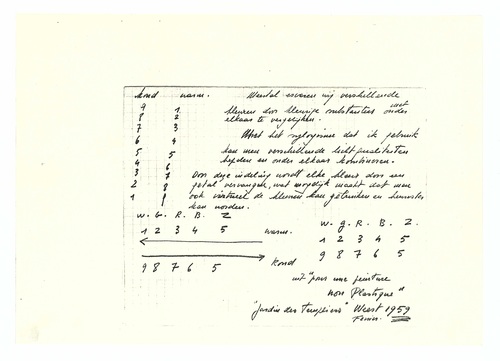 koud warm. Mental ervaren wij verschillende
9 1. kleuren door kleurige substanties met onder
8 2 elkaar te vergelijken.
7 3 Met het syllogisme dat ik gebruik
6 4 kan men verschillende licht
5 5 en onder elkaar kombineren.
4 6
3 7 Door deze indeling wordt elke kleur door een
2 8 getal vervangen, wat mogelijk maakt dat men
1 9 ook virtueel de kleuren kan gebruiken en
kan worden.
W. G. R. B. Z
1 2 3 4 5 warm.
9 8 7 6 5 koud
W. g. R. B. Z.
1 2 3 4 5
9 8 7 6 5
uit "pour une peinture
non Plastique"
"Jardin des Templiers" Weert 1959